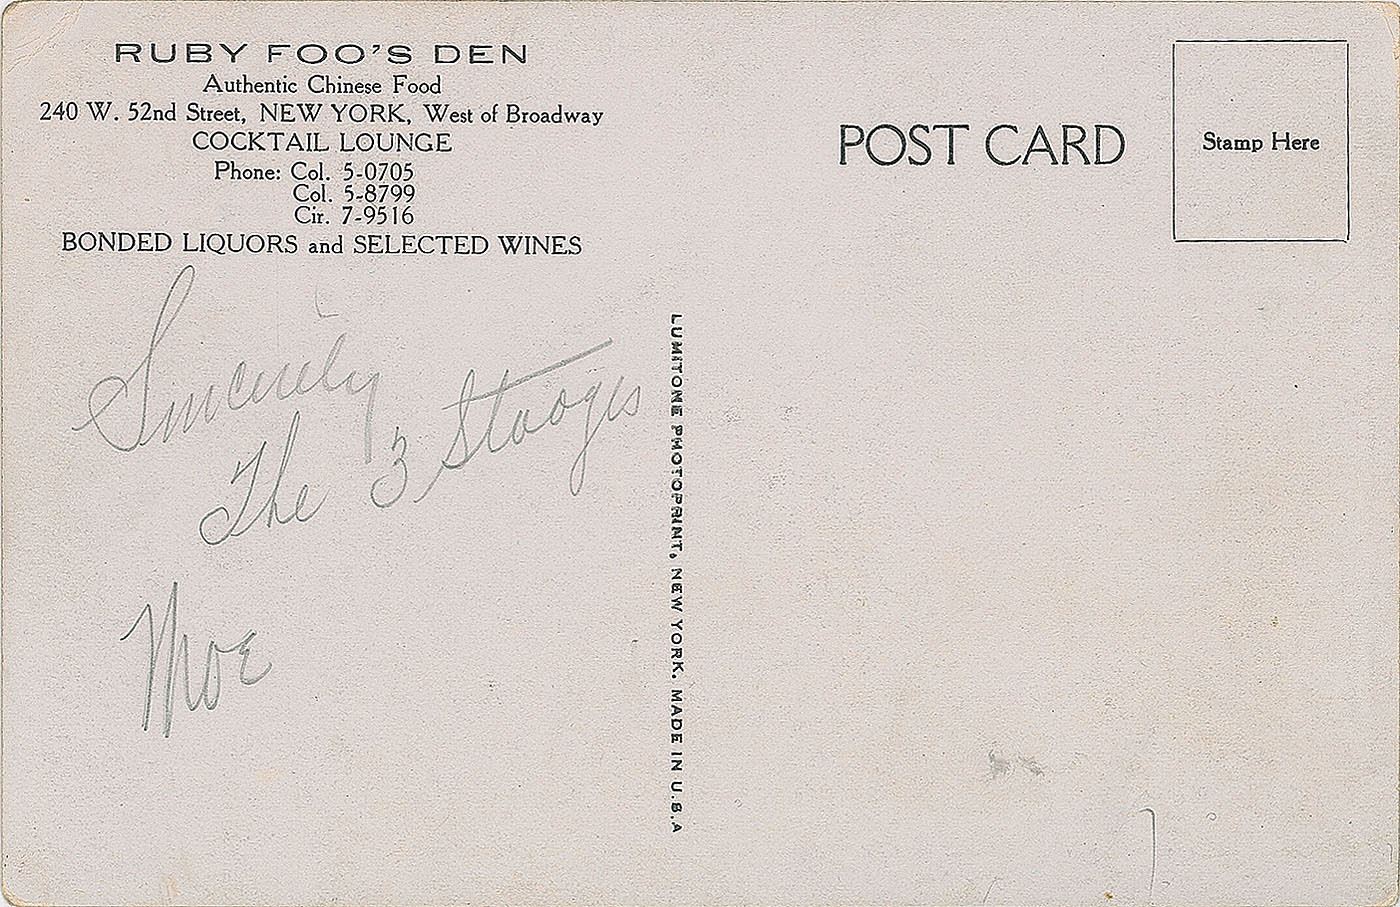 RUBY FOO'S DEN
Authentic Chinese Food
240 W. 52nd Street, NEW YORK, West of Broadway
COCKTAIL LOUNGE
Phone: Col. 5-0705
Col. 5-8799
Cir. 7-9516
BONDED LIQUORS and SELECTED WINES
Sincerely
The 3 Stooges
Moe
LUMITONE PHOTOPRINT, NEW YORK. MADE IN U.S.A
POST CARD
Stamp Here